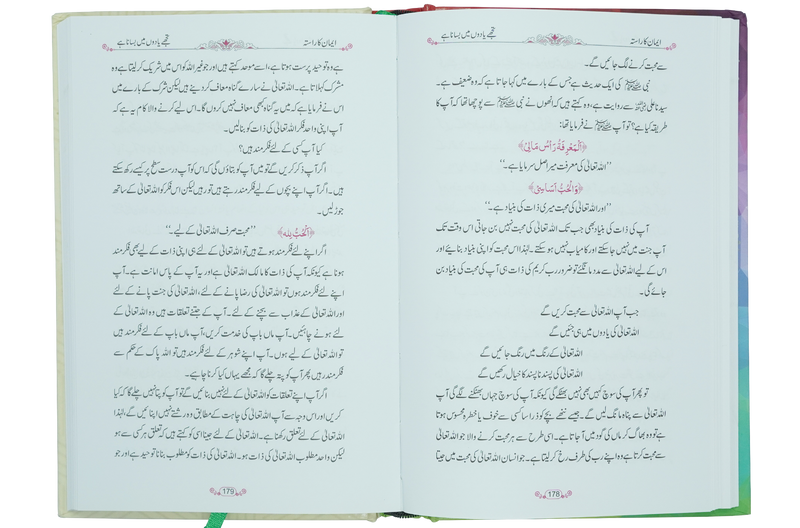 ایمان کا راستہ
تجھے یادوں میں بسانا ہے
سے محبت کرنے لگ جائیں گے۔
نبی ﷺ کی ایک حدیث ہے جس کے بارے میں کہا جاتا ہے کہ وہ ضعیف ہے۔
سیدنا علیؓ سے روایت ہے، وہ کہتے ہیں کہ انھوں نے نبی ﷺ سے پوچھا تھا کہ آپ کا
طریقہ کیا ہے؟ تو آپ ﷺ نے فرمایا تھا:
﴿اَلْمَعْرِفَةُ رَاْسُ مَالِیْ﴾
’’اللہ تعالی کی معرفت میرا اصل سرمایا ہے۔‘‘
﴿وَالْحُبُّ اَسَاسِیْ﴾
’’اور اللہ تعالی کی محبت میری ذات کی بنیاد ہے۔‘‘
آپ کی ذات کی بنیاد بھی جب تک اللہ تعالی کی محبت نہیں بن جاتی اس وقت تک
آپ جنت میں نہیں جا سکتے اور کامیاب نہیں ہو سکتے۔ لہٰذا اس محبت کو اپنی بنیاد بنائیے اور
اس کے لیے اللہ تعالی سے مدد مانگئے تو ضرور رب کریم کی ذات ہی آپ کی محبت کی بنیاد بن
جائے گی۔
جب آپ اللہ تعالی سے محبت کریں گے
اللہ تعالی کی یادوں میں ہی جئیں گے
اللہ تعالی کے رنگ میں رنگ جائیں گے
اللہ تعالی کی پسند نا پسند کا خیال رکھیں گے
تو پھر آپ کی سوچ کہیں بھی نہیں بھٹکے گی کیونکہ آپ کی سوچ جہاں بھٹکنے لگے گی آپ
اللہ تعالی سے پناہ مانگ لیں گے۔ جیسے ننھے بچے کو ذرا سا کسی سے خوف یا خطرہ محسوس ہوتا
ہے تو وہ بھاگ کر ماں کی گود میں آ جاتا ہے۔ اسی طرح سے ہر محبت کرنے والا جو اللہ تعالی
سے محبت کرتا ہے وہ اپنے رب کی طرف رخ کر لیتا ہے۔ جو انسان اللہ تعالی کی محبت میں جیتا
178
ایمان کا راستہ
تجھے یادوں میں بسانا ہے
ہے وہ توحید پرست ہوتا ہے، اسے موحد کہتے ہیں اور جو غیر اللہ کو اس میں شریک کر لیتا ہے وہ
مشرک کہلاتا ہے۔ اللہ تعالی نے سارے گناہ معاف کر دینے ہیں لیکن شرک کے بارے میں
اس نے فرمایا ہے کہ میں یہ گناہ کبھی معاف نہیں کروں گا۔ اس لیے کرنے والا کام یہ ہے کہ
آپ اپنی واحد فکر اللہ تعالی کی ذات کو بنالیں۔
کیا آپ کسی کے لئے فکرمند ہیں؟
اگر آپ ذکر کریں گے تو میں آپ کو بتاؤں گی کہ اس کو آپ درست سطح پر کیسے رکھ سکتے
ہیں۔ اگر آپ اپنے بچوں کے لیے فکرمند رہتے ہیں تو رہیں لیکن اس فکر کو اللہ تعالی کے ساتھ
جوڑ لیں۔
﴿اَلْحُبُّ لِلّٰه﴾ ’’محبت صرف اللہ تعالی کے لیے۔‘‘
اگر اپنے لئے فکرمند ہوتے ہیں تو اللہ تعالی کے لئے ہی اپنی ذات کے لیے بھی فکرمند
ہونا ہے کیونکہ آپ کی ذات کا مالک اللہ تعالی ہے اور یہ آپ کے پاس امانت ہے۔ آپ
اپنے لئے فکرمند ہوں تو اللہ تعالی کی رضا پانے کے لئے، اللہ تعالی کی جنت پانے کے لئے
اور اللہ تعالی کے عذاب سے بچنے کے لئے۔ آپ کے جتنے تعلقات ہیں وہ اللہ تعالی کے
لئے ہونے چاہئیں۔ آپ ماں باپ کی خدمت کریں، آپ ماں باپ کے لئے فکرمند ہیں
تو اللہ تعالی کے لیے ہوں۔ آپ اپنے شوہر کے لئے فکرمند ہیں تو اللہ پاک کے حکم سے
فکرمند رہیں پھر آپ کو پتہ چلے گا کہ مجھے یہاں کیا کرنا چاہیے۔
اگر آپ اپنے تعلقات کو اللہ تعالی کے لئے نہیں بنائیں گے تو آپ کو پتا نہیں چلے گا کہ کیا
کریں اور اس وجہ سے آپ اللہ تعالی کی چاہت کے مطابق وہ رشتے نہیں اپنائیں گے، لہٰذا
اللہ تعالی کے لئے تعلق رکھنا ہے۔ اللہ تعالی کے لئے جینا اسی کو کہتے ہیں کہ تعلق ہر کسی سے ہو
لیکن واحد مطلوب اللہ تعالی کی ذات ہو۔ اللہ تعالی کی ذات کو مطلوب بنانا توحید ہے اور جو
179